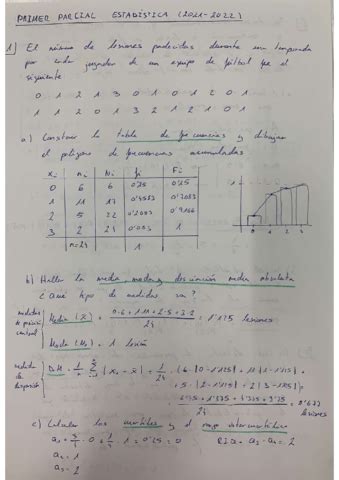 PRIMER PARCIAL ESTADÍSTICA (2021-2022)
1) El número de lesiones padecidas durante una temporada
por cada jugador de un equipo de fútbol fue el
siguiente
0 1 2 1 3 0 1 0 1 2 0 1
1 1 2 0 1 3 2 1 2 1 0 1
a) Construir la tabla de frecuencias y dibujar
el polígono de frecuencias acumuladas
xi ni Ni fi Fi
0 6 6 0'25 0'25
1 11 17
2 5 22 0'2083 0'9166
3 2 24 0'083 1
n=24 1
b) Hallar la media, moda y desviación media absoluta
¿Qué tipo de medidas son?
medidas de posición central
Media (x̄) = 0·6+1·11+2·5+3·2 / 24 = 1'125 lesiones
Moda (Mo) = 1 lesión
medida de dispersión
D.M. = 1/n Σ |xi - x̄| = 1/24 (6·|0-1'125| + 11|1-1'125| +
+ 5·|2-1'125| + 2|3-1'125|) =
lesiones
c) Calcular los cuartiles y el rango intercuartílico